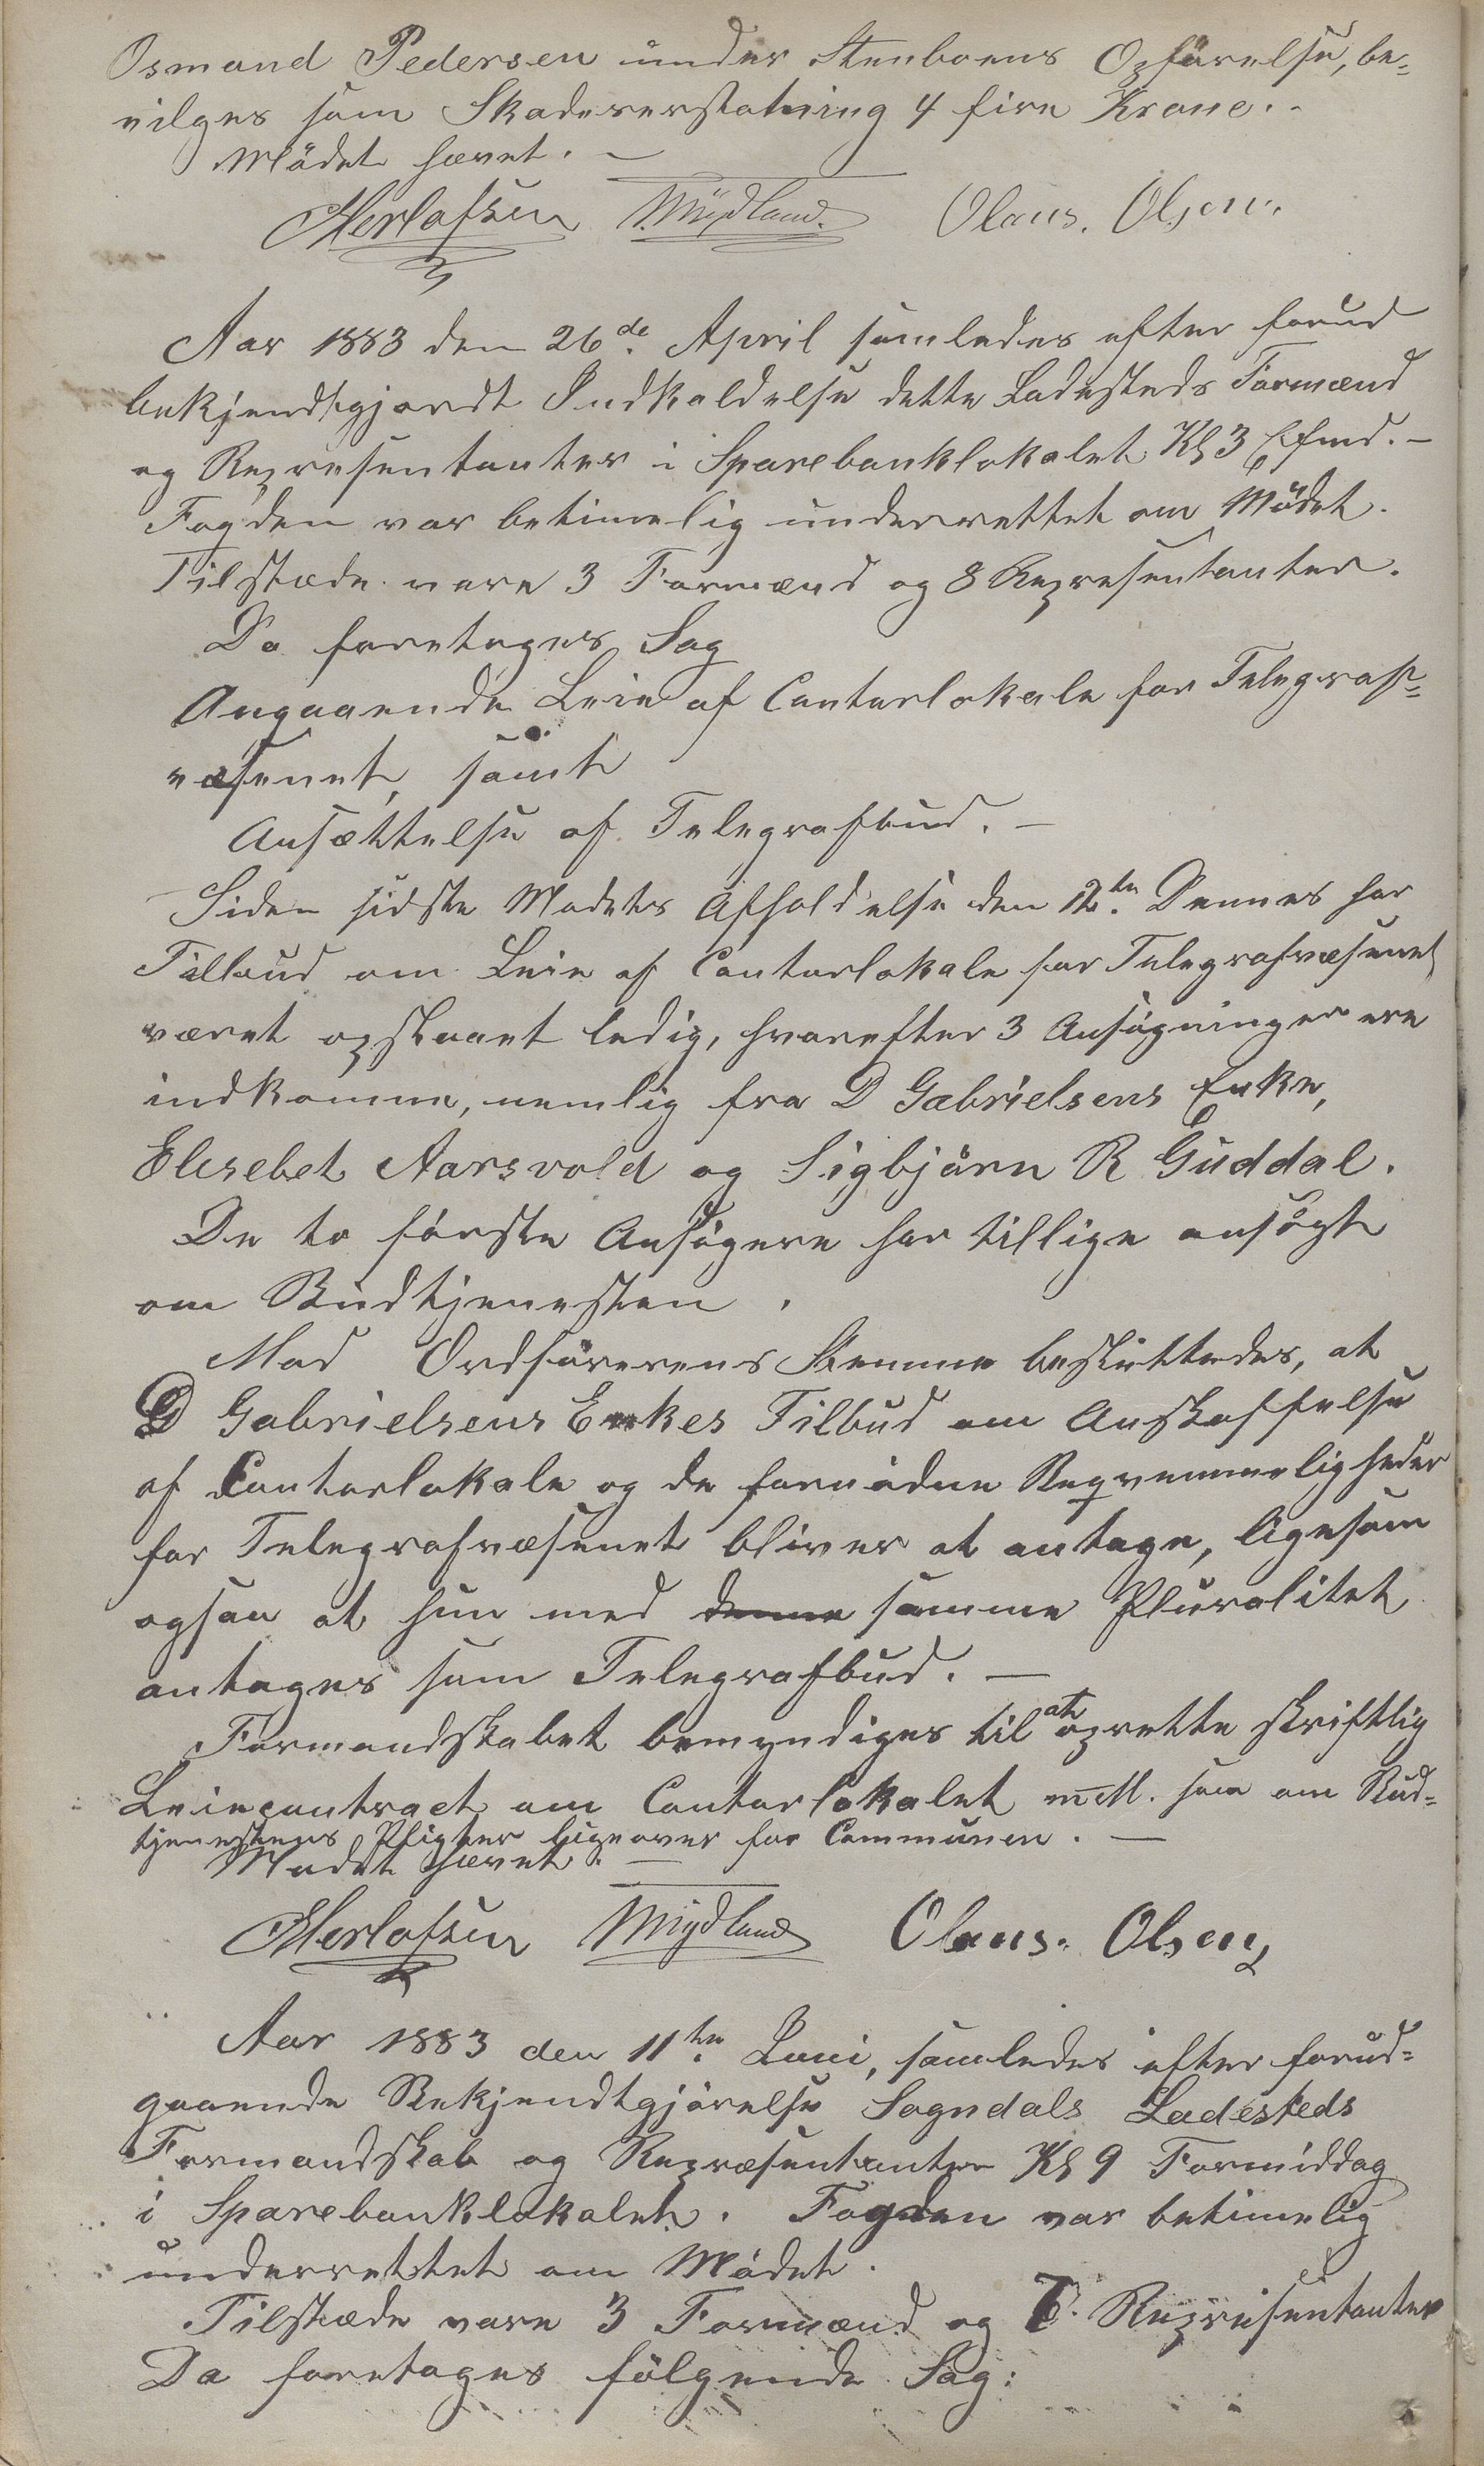 Osmund Pedersen under Stenboens Opförelse, be-
vilges som Skadeserstatning 4 fire Krone. -
Mödet hævet. -
Herlofsen Mydland. Olaus. Olsen.
Aar 1883 den 26de April samledes efter forud
bekjendtgjordt Indkaldelse dette Ladesteds Formænd
og Repræsentanter i Sparebanklokalet Kl 3 Efmd. -
Fogden var betimelig underrettet om Mödet.
Tilstæde vare 3 Formænd og 8 Repræsentanter.
Da foretages Sag
Angaaende Leie af Contorlokale for Telegraf-
væsenet, samt
Ansættelse af Telegrafbud. -
Siden sidste Mödets Afholdelse den 12te Dennes har
Tilbud om Leie af Contorlokale for Telegrafvæsenet
været opslaaet ledig, hvorefter 3 Ansögninger ere
indkomne, nemlig fra D Gabrielsens Enke,
Elisebet Aarsvold og Sigbjörn R Guddal.
De to förste Ansögere har tillige ansögt
om Budtjenesten.
Mod Ordförerens Stemme besluttedes, at
D Gabrielsens Enkes Tilbud om Anskaffelse
af Contorlokale og de fornödne Beqvemmeligheder
for Telegrafvæsenet bliver at antage, ligesom
ogsaa at hun med denne samme Pluralitet
antages som Telegrafbud. -
Formandskabet bemyndiges til at oprette skriftlig
Leiecontract om Contorlokalet m.M. som om Bud-
tjenestens Pligter ligeover for Communen. -
Mödet hævet. -
Herlofsen Mydland Olaus. Olsen
Aar 1883 den 11te Juni, samledes efter forud-
gaaende Bekjendtgjörelse Sogndals Ladesteds
Formandskab og Repræsentanter Kl 9 Formiddag
i Sparebanklokalet. Fogden var betimelig
underrettet om Mödet.
Tilstæde vare 3 Formænd og Repræsentanter
Da foretages fölgende Sag: